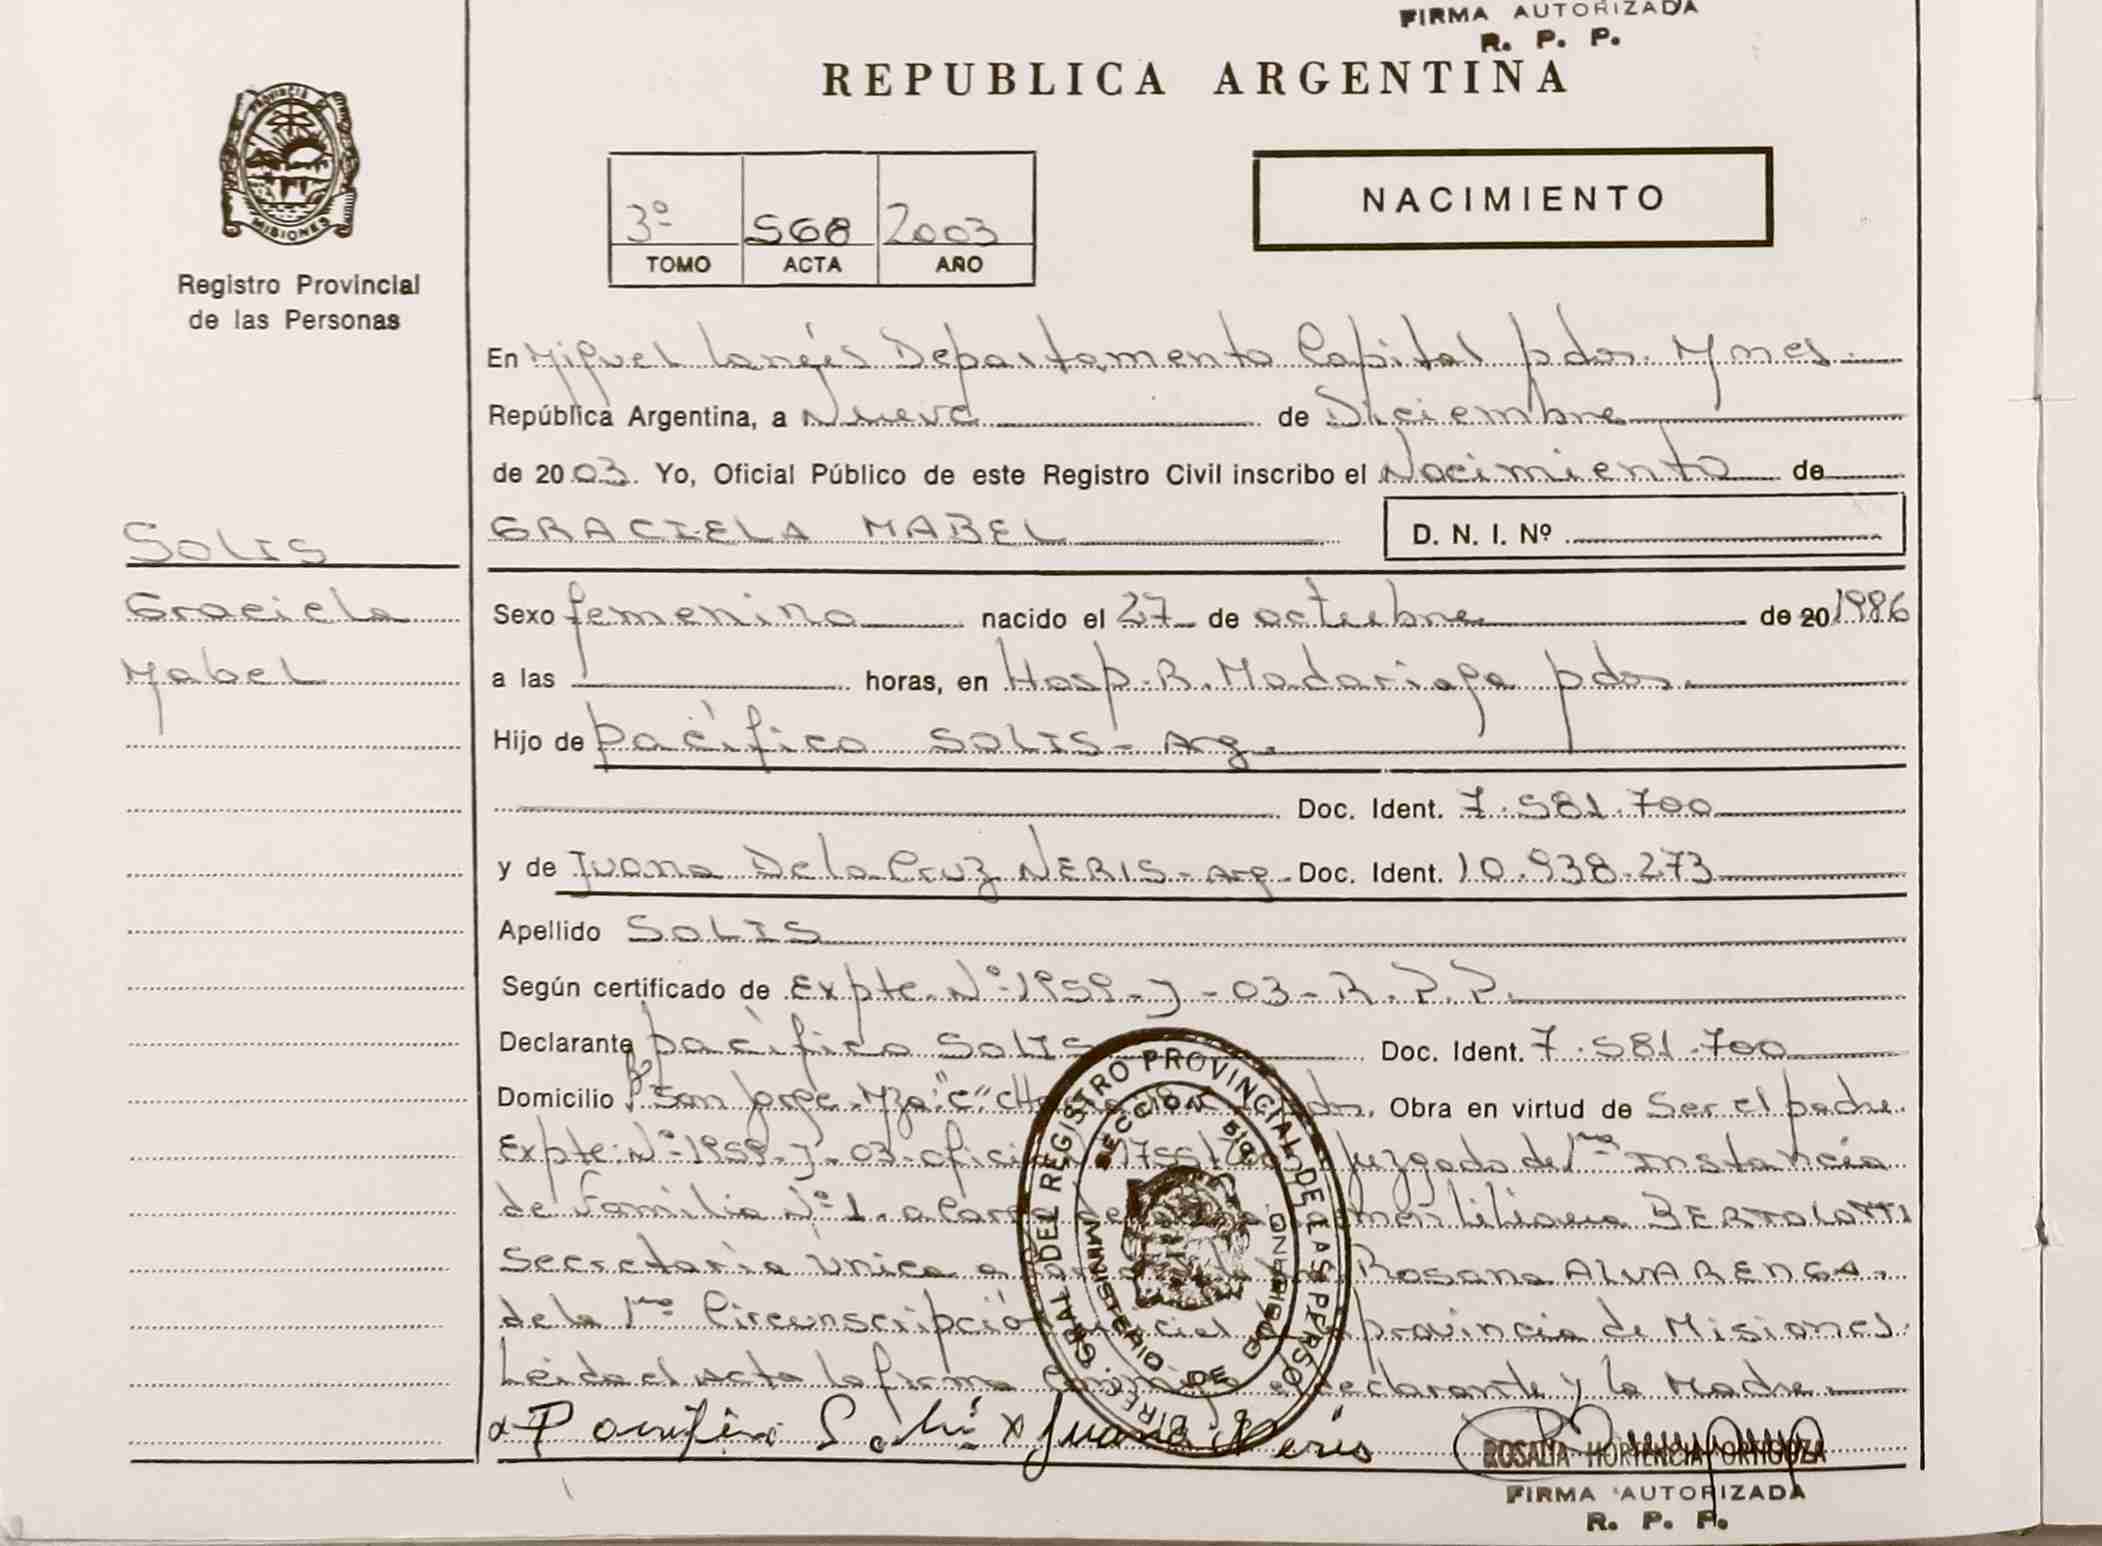 FIRMA AUTORIZADA
R. P. P.
REPUBLICA ARGENTINA
PROVINCIA DE
MISIONES
Registro Provincial
de las Personas
3º 568 2003
TOMO ACTA AÑO
NACIMIENTO
En Miguel Lanús Departamento Capital pdas. Mnes.
República Argentina, a Nueve de Diciembre
de 2003. Yo, Oficial Público de este Registro Civil inscribo el Nacimiento de
GRACIELA MABEL D. N. I. Nº
SOLIS
Graciela
Mabel
Sexo femenino nacido el 27 de octubre de 20 1986
a las horas, en Hosp. R. Madariaga pdas.
Hijo de pacífico SOLIS - Arg.
Doc. Ident. 7.581.700
y de Juana De la Cruz NERIS - Arg. Doc. Ident. 10.938.273
Apellido SOLIS
Según certificado de Expte. Nº 1959-J-03-R.P.P.
Declarante pacífico SOLIS Doc. Ident. 7.581.700
Domicilio Bº San Jorge Mza "C" pdas. Obra en virtud de Ser el padre.
Expte. Nº 1959-J-03. oficio Juzgado de 1ra Instancia
de Familia Nº 1. a Cargo de BERTOLOTTI
Secretaría única a Rosana ALVARENGA.
de la 1ra Circunscripción Judicial provincia de Misiones.
Leída el Acta la firma declarante y la Madre
Juana Neris
DIREC. GRAL DEL REGISTRO PROVINCIAL DE LAS PERSO
MINISTERIO DE GOBIERNO
SECCION
ROSALIA HORTENCIA ORTIGOZA
FIRMA AUTORIZADA
R. P. P.